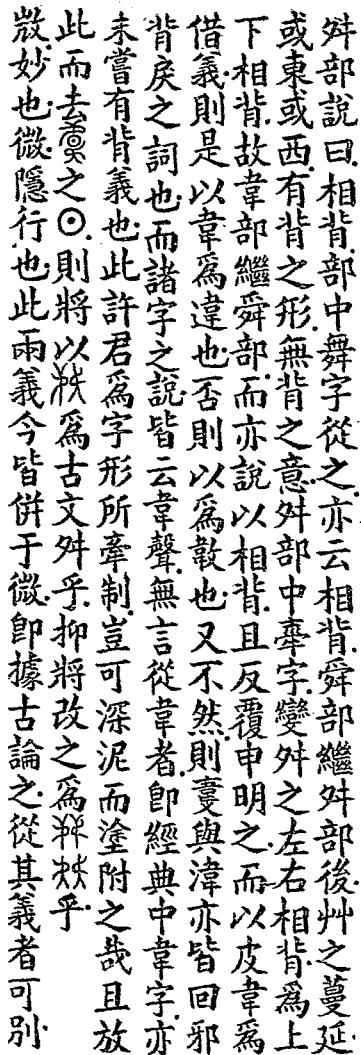 舛部說曰相背部中舞字從之亦云相背舜部繼舛部後艸之蔓延
或東或西有背之形無背之意舛部中舝字變舛之左右相背爲上
下相背故韋部繼舜部而亦說以相背且反覆申明之而以皮韋爲
借義則是以韋爲違也否則以爲㪅也又不然則𡕾與湋亦皆回邪
背戾之詞也而諸字之說皆云韋聲無言從韋者卽經典中韋字亦
未嘗有背義也此許君爲字形所牽制豈可深泥而塗附之哉且放
此而去之⊙則將以爲古文舛乎抑將改之爲乎
㪚妙也微隱行也此兩義今皆倂于微卽據古論之從其義者可別